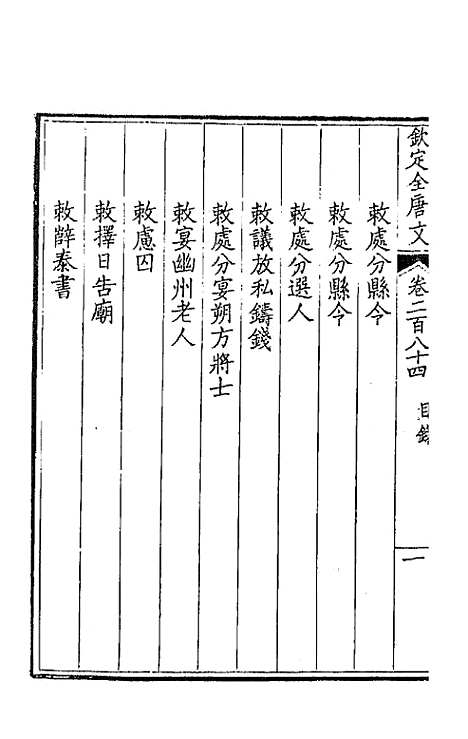 欽定全唐文 卷二百八十四 目錄 一
敕處分縣令
敕處分縣令
敕處分選人
敕議放私鑄錢
敕處分宴朔方將士
敕宴幽州老人
敕慮囚
敕擇日告廟
敕辭奏書